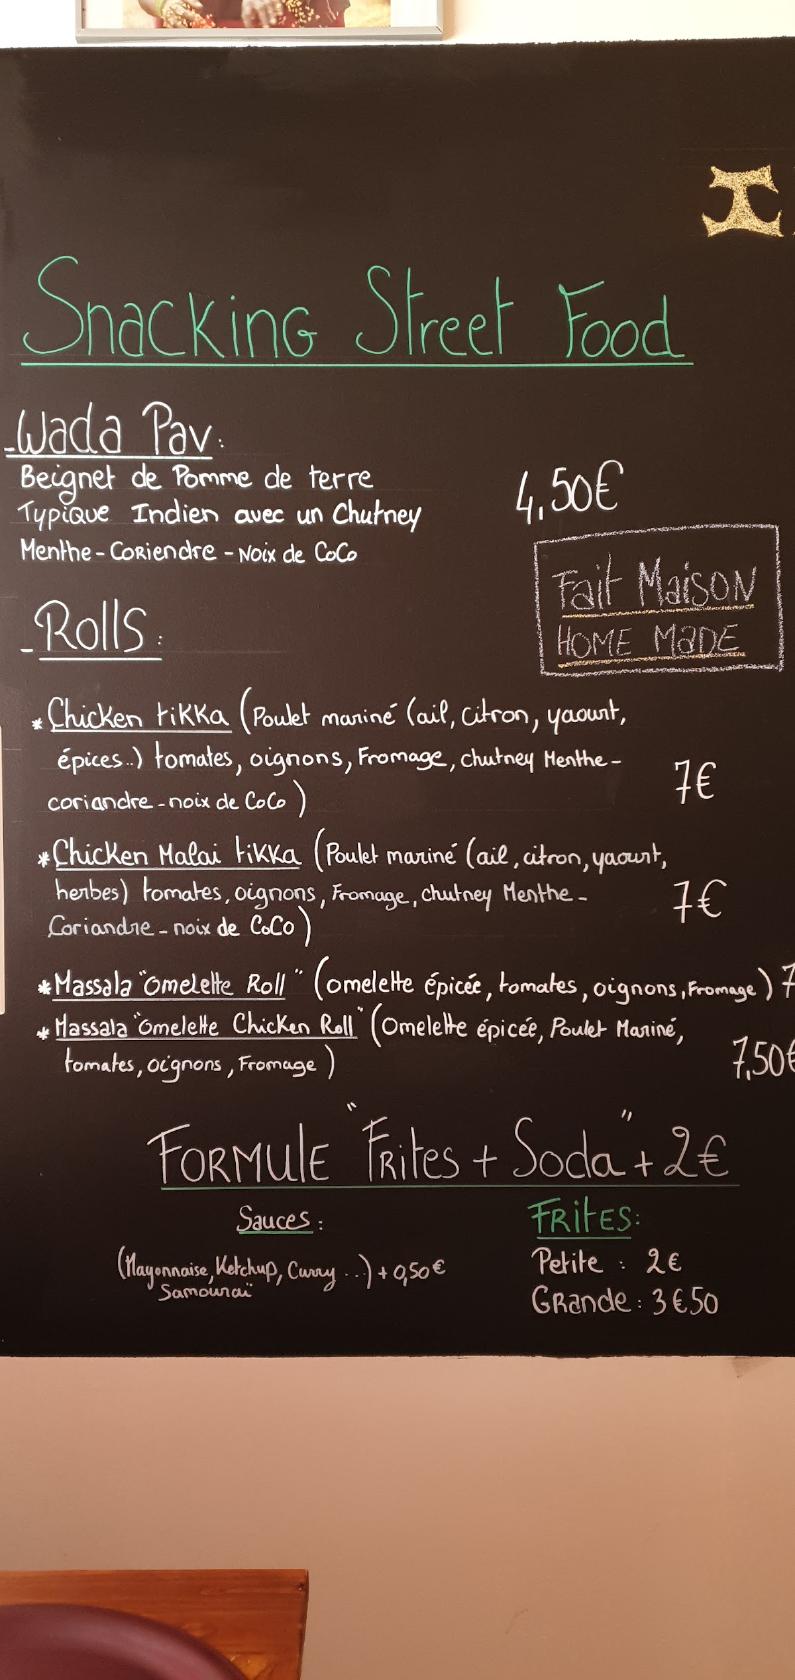 I
Snacking Street Food
-Wada Pav:
Beignet de Pomme de terre
Typique Indien avec un Chutney
4,50€
Menthe-Coriendre-Noix de CoCo
Fait Maison
HOME MADE
-Rolls:
*Chicken tikka (Poulet mariné (ail, citron, yaourt,
épices..) tomates, oignons, Fromage, chutney Menthe-
coriandre-noix de CoCo)
7€
*Chicken Malai tikka (Poulet mariné (ail, citron, yaourt,
herbes) tomates, oignons, Fromage, chutney Menthe-
Coriandre-noix de CoCo)
7€
*Massala "Omelette Roll" (omelette épicée, tomates, oignons, Fromage) 7
*Massala "Omelette Chicken Roll" (Omelette épicée, Poulet Mariné,
tomates, oignons, Fromage)
7,50€
FORMULE "Frites + Soda" + 2€
Sauces:
(Mayonnaise, Ketchup, Curry...) + 0,50€
Samouraï
FRITES:
Petite : 2€
GRande : 3€50